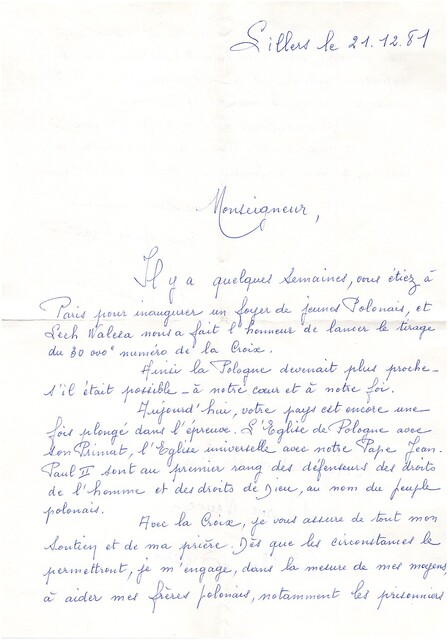 Lillers le 21.12.81
Monseigneur,
Il y a quelques semaines, vous étiez à
Paris pour inaugurer un foyer de jeunes Polonais, et
Lech Walesa nous a fait l'honneur de lancer le tirage
du 30 000e numéro de la Croix.
Ainsi la Pologne devenait plus proche -
s'il était possible - à notre cœur et à notre foi.
Aujourd'hui, votre pays est encore une
fois plongé dans l'épreuve. L'Eglise de Pologne avec
son Primat, l'Eglise universelle avec notre Pape Jean.
Paul II sont au premier rang des défenseurs des droits
de l'homme et des droits de Dieu, au nom du peuple
polonais.
Avec la Croix, je vous assure de tout mon
soutien et de ma prière. Dès que les circonstances le
permettront, je m'engage, dans la mesure de mes moyens
à aider mes frères polonais, notamment les prisonniers